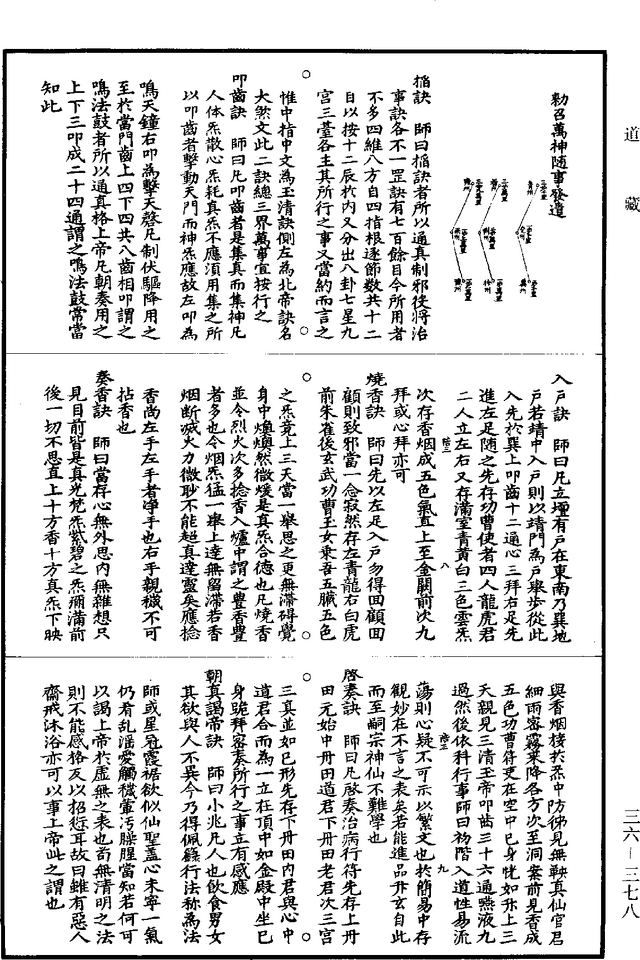 道藏
勑召萬神随事發遣
掐訣 師曰掐訣者所以通真制邪役將治
事訣各不一罡訣有七百餘目今所用者
不多四維八方自四指根逐節數共十二
目以按十二辰於内又分出八卦七星九
宮三臺各主其所行之事又當約而言之
惟中指中文為玉清訣側左為北帝訣名
大煞文此二訣總三界萬事宜按行之
叩齒訣 師曰凡叩齒者是集真而集神凡
人体炁散心炁耗真炁不應須用集之所
以叩齒者擊動天門而神炁應故左叩為
鳴天鐘右叩為擊天磬凡制伏驅降用之
至於當門齒上四下四共八齒相叩謂之
鳴法鼓者所以通真格上帝凡朝奏用之
上下三叩成二十四通謂之鳴法鼓常當
知此
入戶訣 師曰凡立壇有戶在東南乃巽地
戶若靖中入戶則以靖門為戶舉步從此
入先於巽上叩齒十二通心三拜右足先
進左足随之先存功曹使者四人龍虎君
二人立左右又存滿室青黃白三色雲炁
次存香烟成五色氣直上至金闕前次九
拜或心拜亦可
燒香訣 師曰先以左足入戶勿得回顧回
顧則致邪當一念寂然存左青龍右白虎
前朱雀後玄武功曹玉女乘吾五臟五色
之炁竟上三天當一舉思之更無滯碍覺
身中煥煥然微煖是真炁合德也凡燒香
並令烈火次多捻香入爐中謂之豊香豊
者多也令烟炁猛一舉上達無留滯若香
烟断滅火力微眇不能超真達靈矣應捻
香尚左手左手者净手也右手親穢不可
拈香也
奏香訣 師曰當存心無外思内無雜想只
見目前皆是真光梵炁紫碧之炁瀰滿前
後一切不思直上十方香十方真炁下映
與香烟棲於炁中防彿見無鞅真仙官君
細雨密霧來降各方次至洞案前見香成
五色功曹符吏在空中已身恍如升上三
天親見三清玉帝叩齒三十六通嚥液九
過然後依科行事師曰初階入道性易流
蕩則心疑不可示以繁文也於簡易中存
觀妙在不言之表矣若能進品升玄自此
而至嗣宗神仙不難學也
啓奏訣 師曰凡啓奏治病行符先存上丹
田元始中丹田道君下丹田老君次三宮
三真並如已形先存下丹田内君與心中
道君合而為一立在頂中如金殿中坐已
身跪拜密奏所行之事立有感應
朝真謁帝訣 師曰小兆凡人也飲食男女
其欲與人不異今乃得佩籙行法称為法
師或星冠霞裾欲似仙聖蓋心未寧一氣
仍肴乱淫愛觸穢葷汚臊腥當知若何可
以謁上帝於虛無之表也苟無清明之法
則不能感格反以招愆耳故曰雖有惡人
齋戒沐浴亦可以事上帝此之謂也
三六－三七八